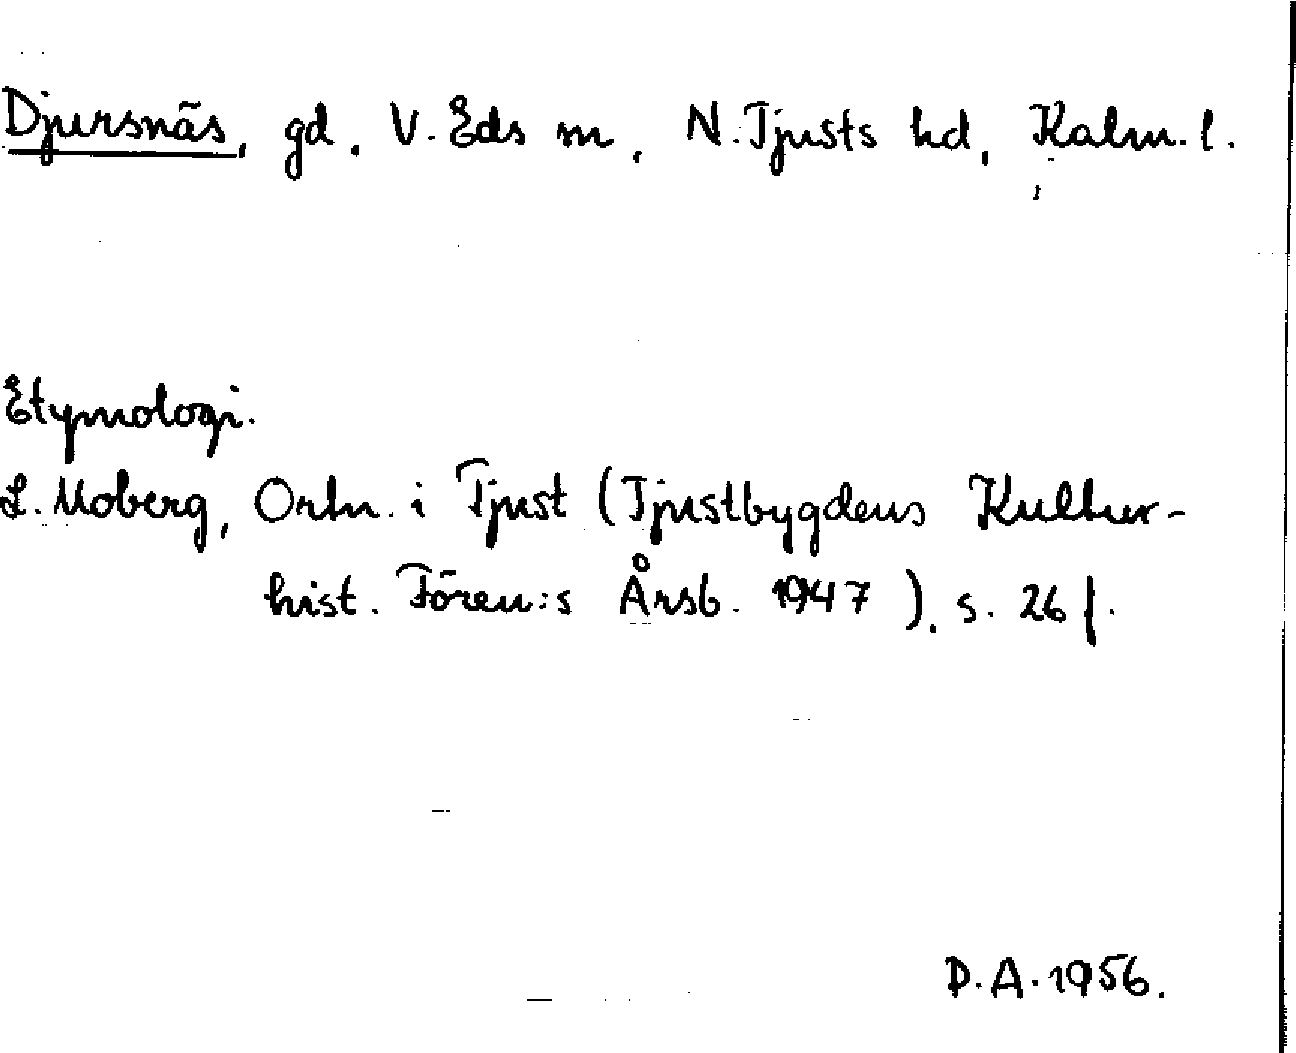 Djursnäs, gd, V. Eds sn, N. Tjusts hd, Kalm. l.
Etymologi.
L. Moberg, Ortn. i Tjust (Tjustbygdens Kultur-
hist. Fören:s Årsb. 1947), s. 26 f.
D.A. 1956.